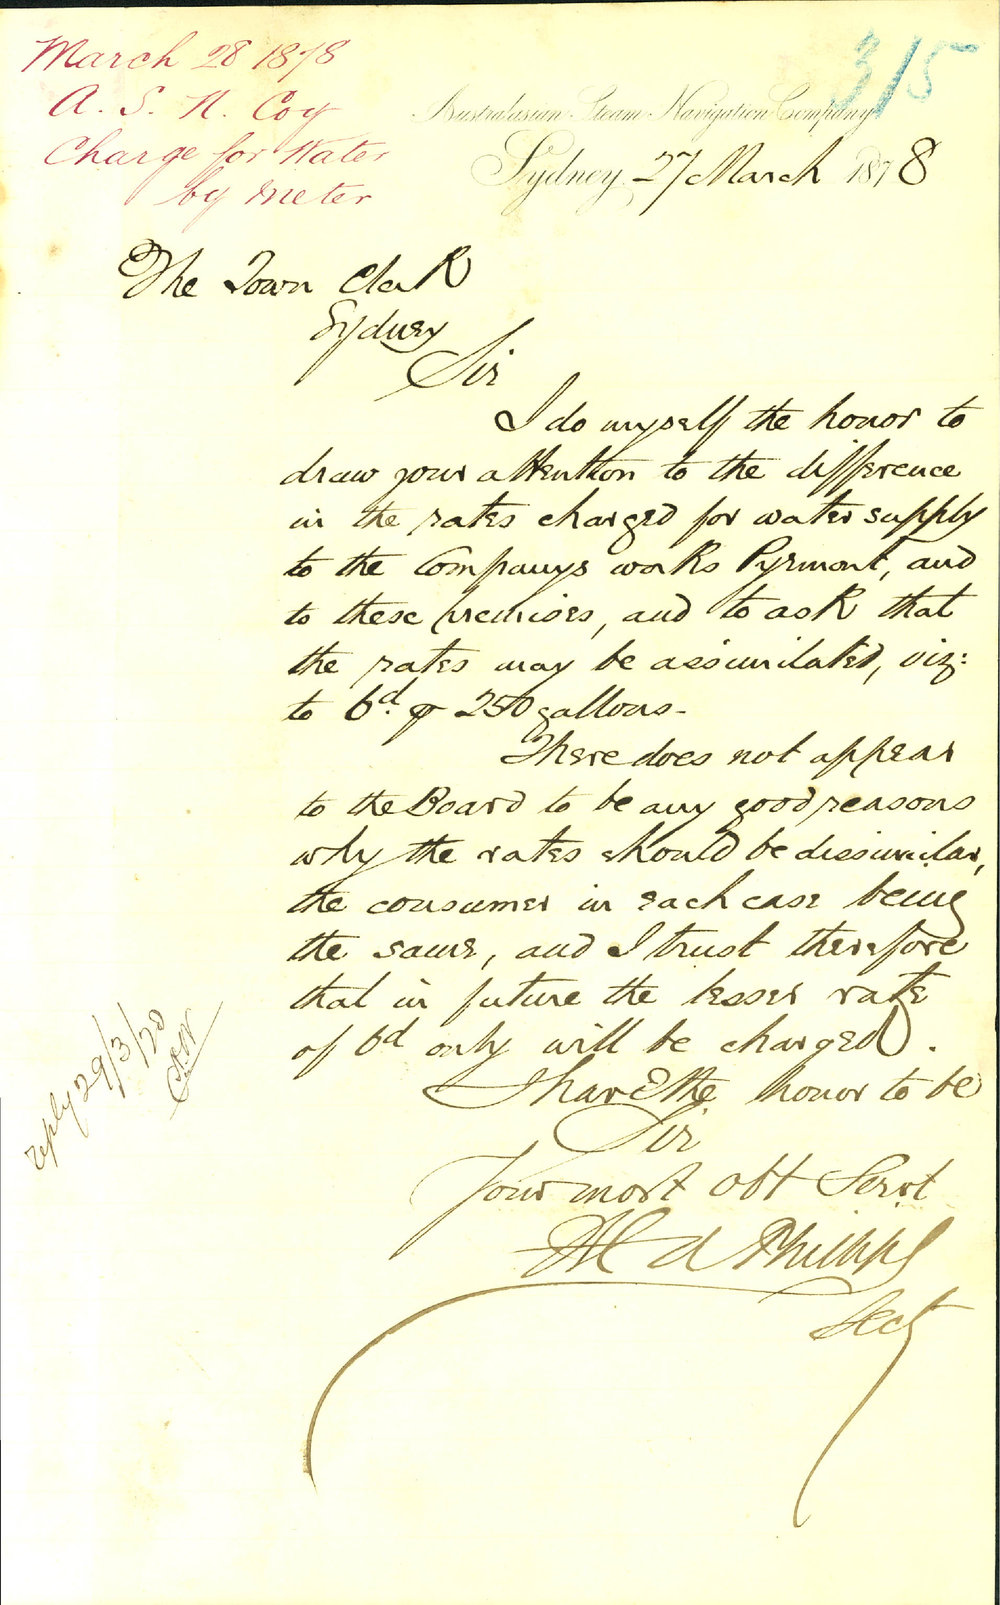 March 28 1878
A. S. N. Coy
Charge for Water
by Meter
315
Australasian Steam Navigation Company
Sydney, 27 March 1878
The Town Clerk
Sydney
Sir
I do myself the honor to
draw your attention to the difference
in the rates charged for water supply
to the Companys works Pyrmont, and
to these premises, and to ask that
the rates may be assimilated, viz:
to 6d. ⅌ 250 gallons-
There does not appear
to the Board to be any good reasons
why the rates should be dissimilar,
the consumer in each case being
the same, and I trust therefore
that in future the lesser rate
of 6d only will be charged.
I have the honor to be
Sir
Your most Obt Servt
Phillips
Secy
reply 29/3/78